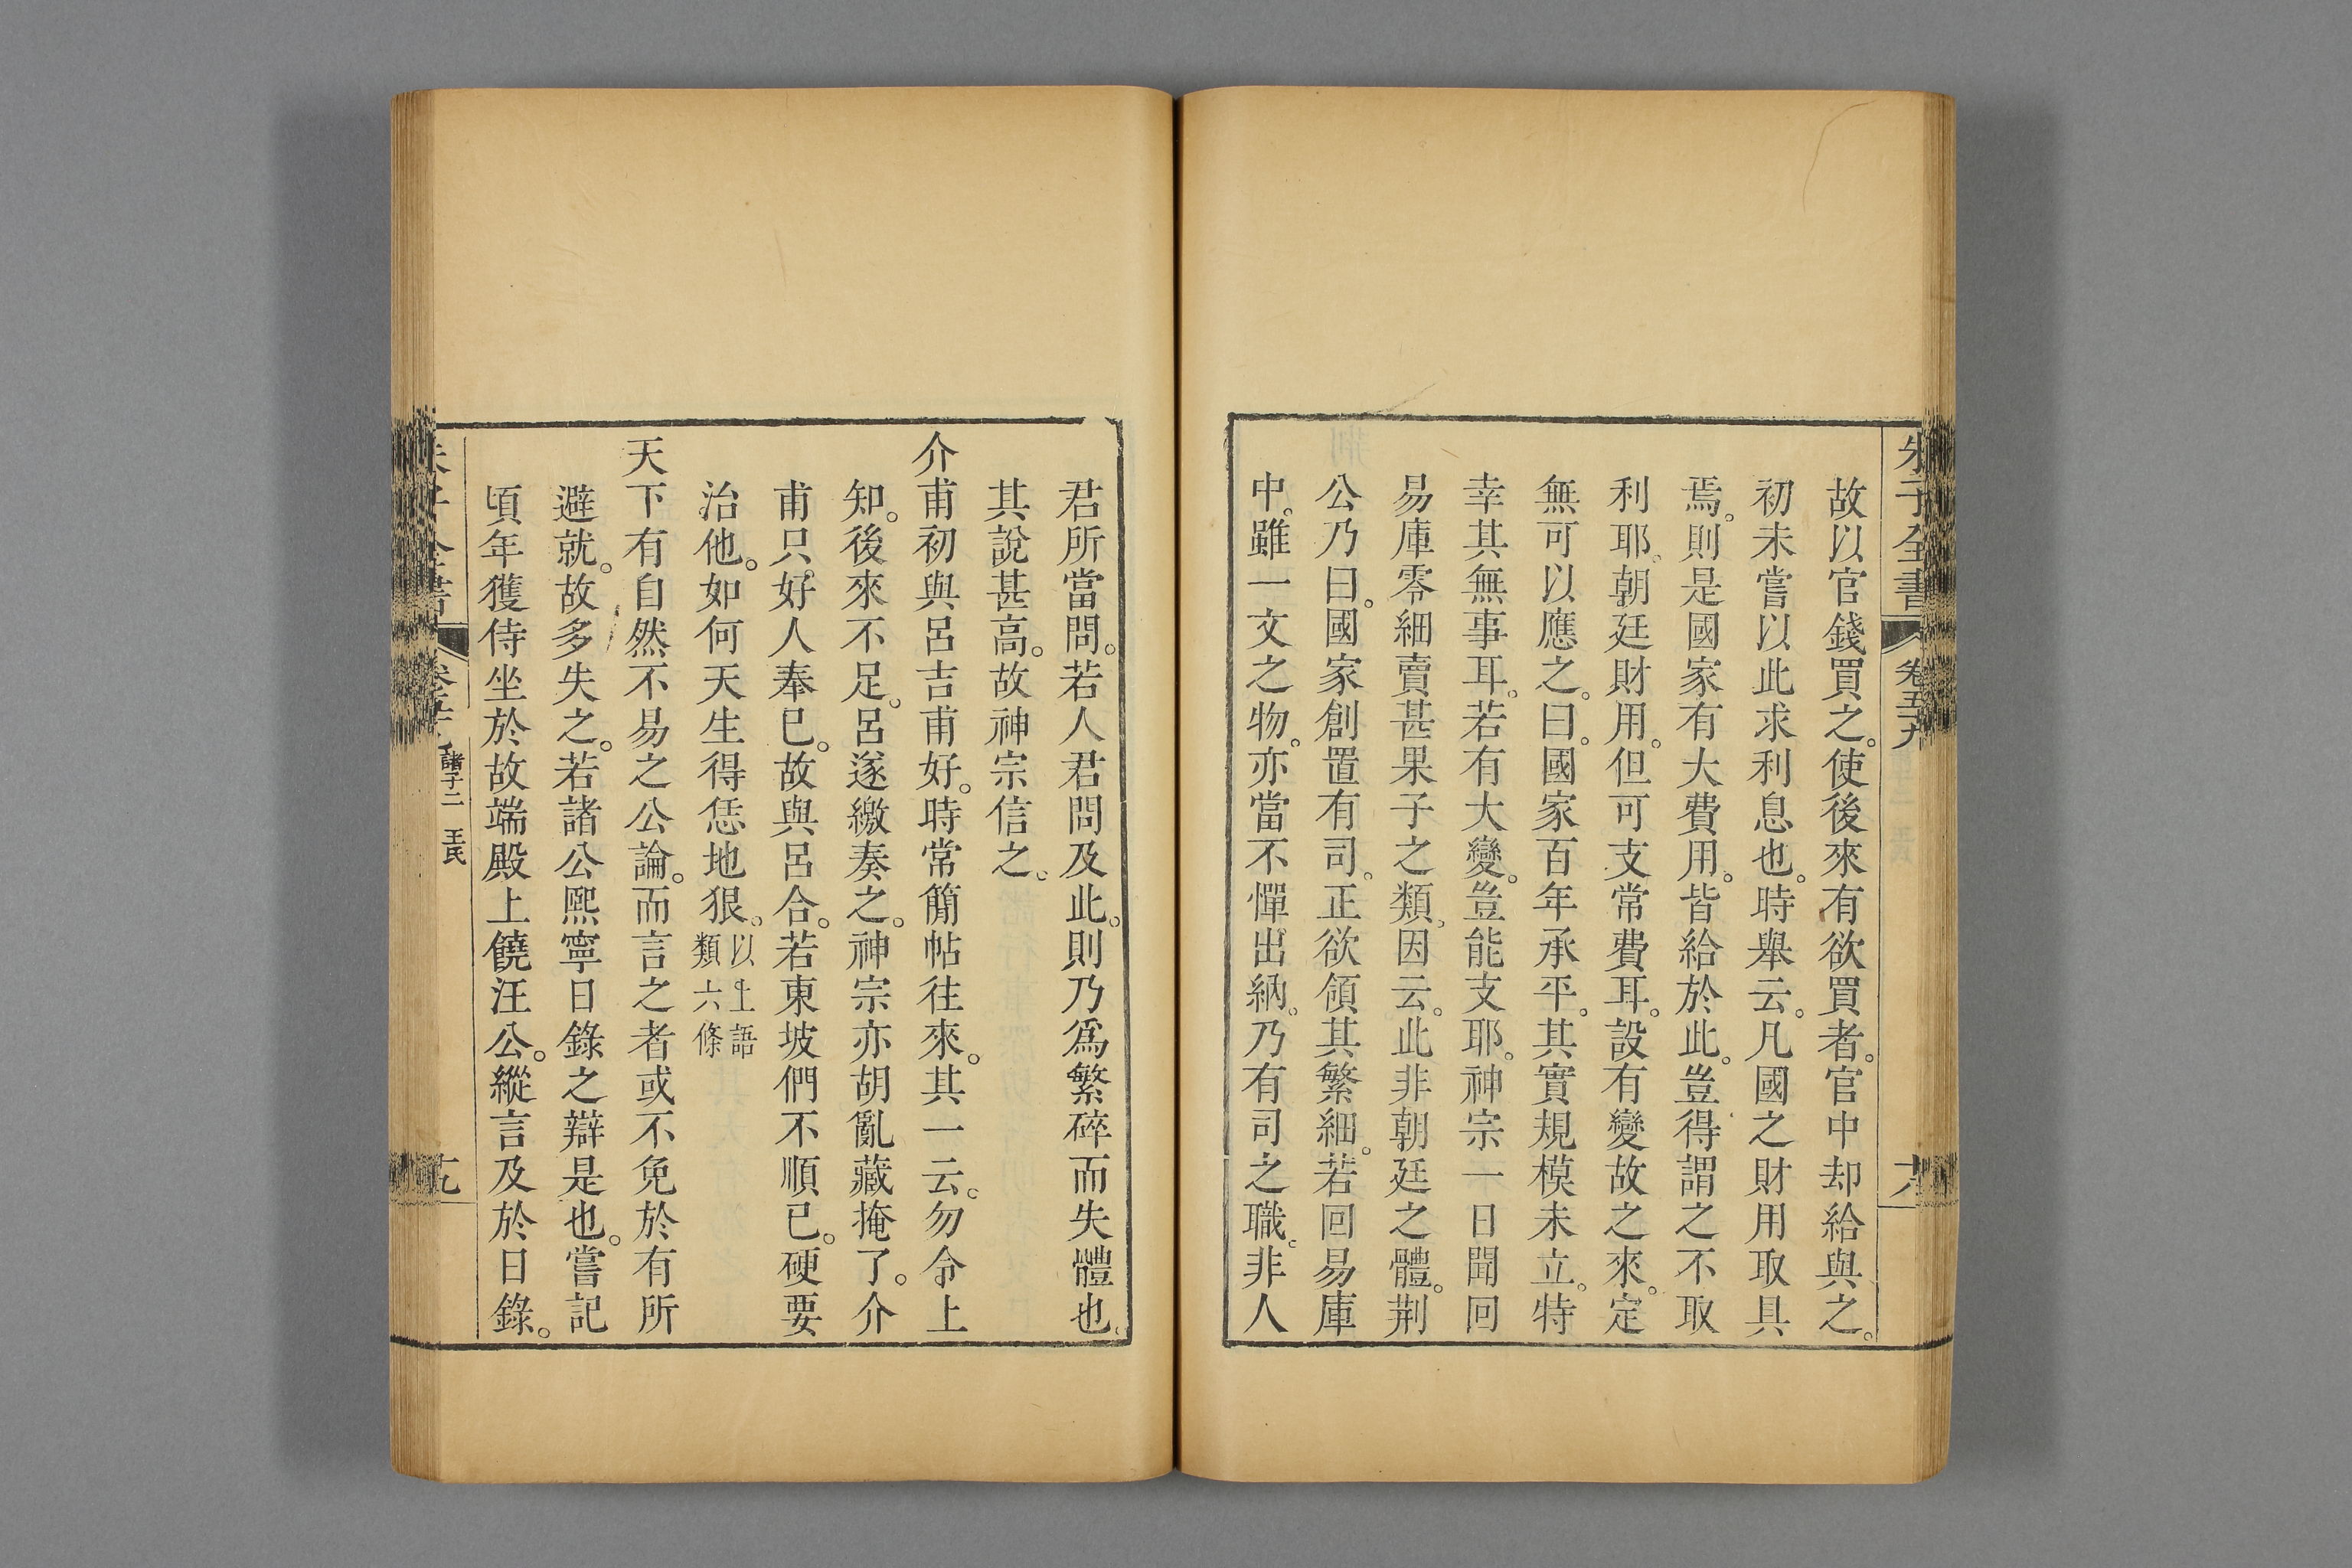 朱子全書 卷五十九 十八
故以官錢買之。使後來有欲買者。官中却給與之。
初未嘗以此求利息也。時舉云。凡國之財用取具
焉。則是國家有大費用。皆給於此。豈得謂之不取
利耶。朝廷財用。但可支常費耳。設有變故之來。定
無可以應之。曰。國家百年承平。其實規模未立。特
幸其無事耳。若有大變。豈能支耶。神宗一日聞回
易庫零細賣甚果子之類。因云。此非朝廷之體。荆
公乃曰。國家創置有司。正欲領其繁細。若回易庫
中。雖一文之物。亦當不憚出納。乃有司之職。非人
君所當問。若人君問及此。則乃爲繁碎而失體也。
其說甚高。故神宗信之。
介甫初與呂吉甫好。時常簡帖往來。其一云。勿令上
知。後來不足。呂遂繳奏之。神宗亦胡亂藏掩了。介
甫只好人奉已。故與呂合。若東坡們不順已。硬要
治他。如何天生得恁地狠。以上語類六條
天下有自然不易之公論。而言之者或不免於有所
避就。故多失之。若諸公熙寧日錄之辯是也。嘗記
頃年獲侍坐於故端殿上饒汪公。縱言及於日錄。
諸子二 王氏